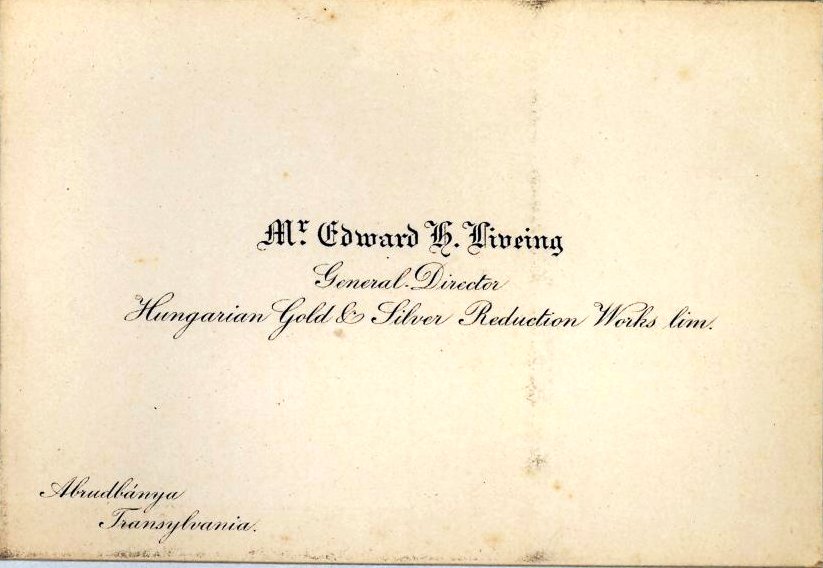 Mr. Edward H. Liveing
General-Director
Hungarian Gold & Silver Reduction Works lim.
Abrudbánya
Transylvania.